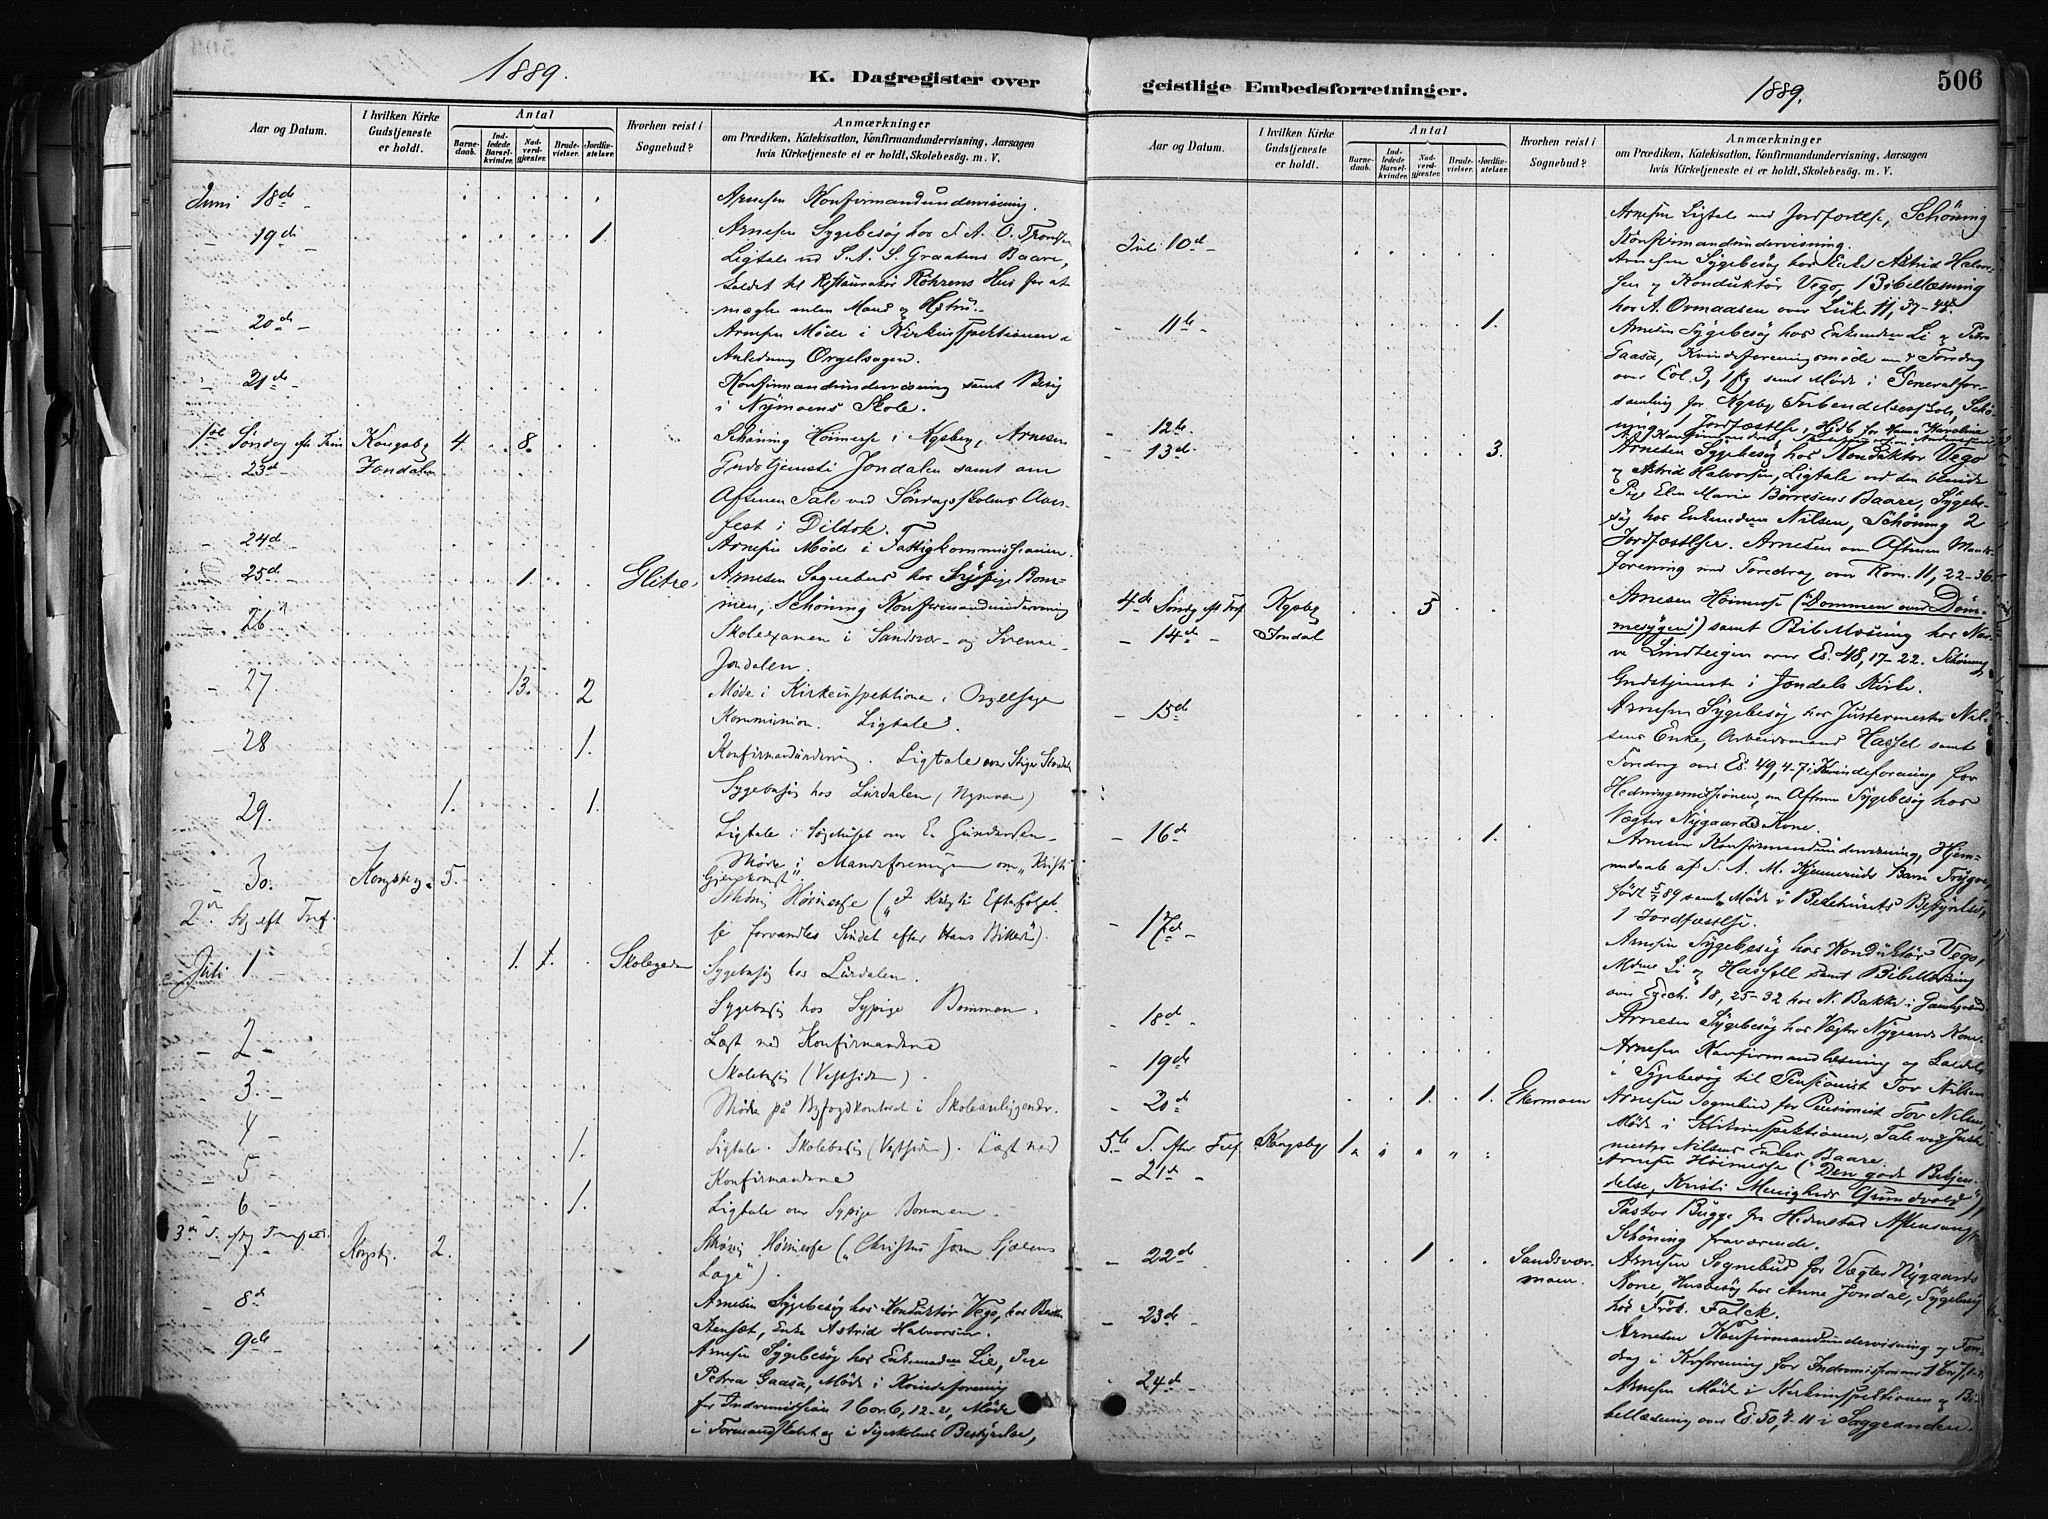 1889.
K. Dagregister over
Aar og Datum.
I hvilken Kirke Gudstjeneste er holdt.
Antal
Barnedaab.
Indledede Barselkvinder.
Nadverdgjester.
Brudevielser.
Jordfæstelser.
Hvorhen reist i Sognebud?
Anmærkninger
om Prædiken, Katekisation, Konfirmandundervisning, Aarsagen
hvis Kirketjeneste ei er holdt, Skolebesøg. m. V.
Juni 18de Arnesen Konfirmandundervisning.
19de 1. Arnesen Sygebesøg hos S. A. O.
Ligtale ved S. A. S. Graatens Baare,
kaldet til Restauratør Röhrens Hus for at
mægle mellem Mand og Hustru.
20de Arnesen Møde i Kirkeinspektionen i
Anledning Orgelsagen.
21de Konfirmandundervisning samt Besøg
i Nymoens Skole.
1ste Søndag eft. Trin Kongsberg 4 8. Schöning Høimesse i Kgsberg, Arnesen
23de Jondalen Gudstjeneste Jondalen samt om
Aftenen Tale ved Søndagsskolens Aars-
fest i Dildok.
24de Arnesen Møde i Fattigkommissionen.
25de 1. Glitre Arnesen Sognebud hos Sypige Bom-
men, Schöning Konfirmandundervisning
26 Skoleexamen i Sandsvær og Svenne-
Jondalen.
27. 13. 2 Møde i Kirkeinspektione i Orgelsagen
Kommunion. Ligtale.
28 1. Konfirmandundervisning. Ligtale over
29. 1. 1. Sygebesøg hos Lurdalen (Nymoen)
Ligtale i Sygehuset over E. Gundersen
30. Kongsberg 5. Møde i Mandsforeningen om "Kristi
Gjenkomst".
2den Sg eft Tref. Schöning Høimesse ("I Kristi Efterfølgel-
se forvandles Sindet efter Hans Billede").
Juli 1 1. 1. Skolegaden Sygebesøg hos Lurdalen.
Sygebesøg hos Sypige Bommen.
2 Læst med Konfirmanderne
3. Skolebesøg (Vestsiden).
4 Møde på Byfogdkontoret i Skoleanliggender.
5 1. Ligtale. Skolebesøg (Vestsiden). Læst med
Konfirmanderne
6 1. Ligtale over Sypige Bommen.
3die S. efter Trefold.
7 Kongsbg. 2. Schöning Høimesse ("Christus som Sjælens
Læge").
8de Arnesen Sygebesøg hos Konduktør Vego, hos
Stensæt, Enke Astrid Halvorsen.
9de 1 Arnesen Sygebesøg hos Enkemadam Lie, Pige
Petra Gaasa, Møde i Kvindeforening
for Indremissionen 1 Cor. 6, 12-21, Møde
i Formandskabet og i Pigeskolens Bestyrelse,
geistlige Embedsforretninger.
1889.
506
Aar og Datum.
I hvilken Kirke Gudstjeneste er holdt.
Antal
Barnedaab.
Indledede Barselkvinder.
Nadverdgjester.
Brudevielser.
Jordfæstelser.
Hvorhen reist i Sognebud?
Anmærkninger
om Prædiken, Katekisation, Konfirmandundervisning, Aarsagen
hvis Kirketjeneste ei er holdt, Skolebesøg. m. V.
Arnesen Ligtale ved Jordfæstelse, Schöning
Konfirmandundervisning.
Juli 10de Arnesen Sygebesøg hos Enke Astrid Halvor-
sen og Konduktør Vego, Bibellæsning
hos A. Ormaasen over Luk 11, 37-
11te 1. Arnesen Sygebesøg hos Enkemadam Li og Petra
Gaasa, Kvindeforeningsmøde med Foredrag
over Col. 3, 1 flg samt Møde i Generalfor-
samling for Kgsberg
12te
13de 3. Arnesen Sygebesøg hos Konduktør Vego
og Astrid Halvorsen, Ligtale ved den blinde
Pige Elen Marie Børresens Baare, Sygebe-
søg hos Enkemadam Nilsen, Schöning 2
Jordfæstelser. Arnesen om Aftenen Mands-
forening med Foredrag over Rom. 11, 22-36.
4de Søndg eft Tref Kgsberg 5 Arnesen Høimesse ("Dommen over Døm-
14de Jondal mesygen") samt Bibellæsning hos
Lindtvegen over Es. 48, 17-22. Schöning
Gudstjeneste i Jondals Kirke.
15de Arnesen Sygebesøg hos Justermester Nil-
sens Enke, Arbeidsmand Hassel samt
Foredrag over Es. 49, 4-7 i Kvindeforening for
Hedningemissionen, om Aftenen Sygebesøg hos
Vægter Nygaards Kone.
16de 1. Arnesen Konfirmandundervisning, Hjem-
medaab af S. A. M. Kjennerud's Barn Trygve,
født 5/7 89 samt Møde i Bestyrelse,
1 Jordfæstelse.
17de Arnesen Sygebesøg hos Konduktør Vego,
Mdme Li og Hassell samt Bibellæsning
over Ezech. 18, 25-32 hos N. Bakke i
18de Arnesen Sygebesøg hos Vægter Nygaards Kone.
19de Arnesen Konfirmandlæsning og kaldet
i Sygebesøg til Pensionist Tov Nilsen
20de 1 1. Ekermoen Arnesen Sognebud for Pensionist Tov Nilsen,
Møde i Kirkeinspektionen, Tale ved Juster-
mester Nilsens Enkes Baare.
5te S. efter Tref. Kongsbg. 1. Arnesen Høimesse ("Den gode Bekjen-
21de delse, Kristi Menigheds Grundvold"),
Pastor Bugge fra Hedenstad Aftensang,
Schöning fraværende.
22de 1 Sandsvær-
moen. Arnesen Sognebud for Vægter Nygaards
Kone, Husbesøg hos Anne Jondal, Sygebesøg
hos Frøk. Falck.
23de Arnesen Konfirmandundervisning og Fore-
drag i Kvforening for Indremissionen
24de Arnesen Møde i Kirkeinspektionen og Bi-
bellæsning over Es. 50, 4-11 i Saggrenden.